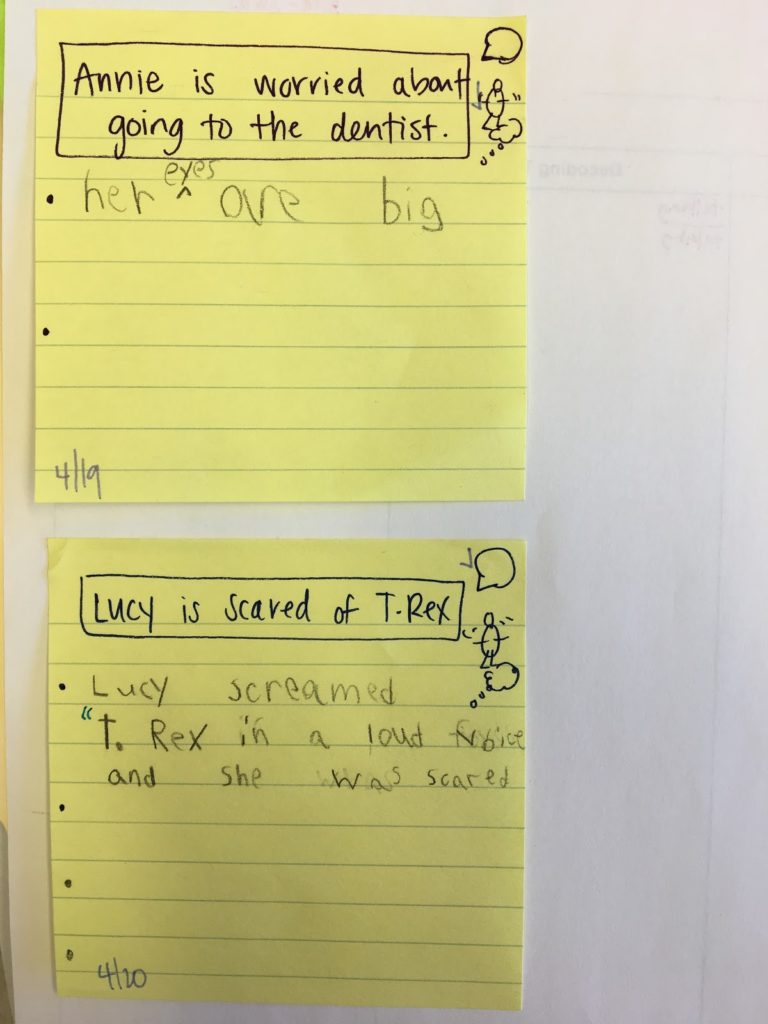 Annie is worried about
going to the dentist.
eyes
• her ^ are big
•
4/19
Lucy is scared of T-Rex
• Lucy screamed
"T. Rex in a loud voice
and she was scared
•
•
•
4/20
Decoding